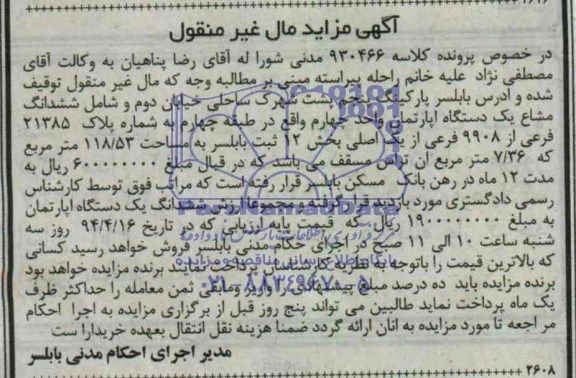 آگهی مزاید مال غیر منقول
در خصوص پرونده کلاسه ۹۳۰۴۶۶ مدنی شورا له آقای رضا پناهیان به وکالت آقای
مصطفی نژاد علیه خانم راحله پیراسته مبنی بر مطالبه وجه که مال غیر منقول توقیف
شده و ادرس بابلسر پارکینگ پشت شهرک ساحلی خیابان دوم و شامل ششدانگ
مشاع یک دستگاه اپارتمان واحد چهارم واقع در طبقه چهارم به شماره پلاک ۲۱۳۸۵
فرعی از ۹۹۰۸ فرعی از یک اصلی بخش ۱۲ ثبت بابلسر به مساحت ۱۱۸/۵۳ متر مربع
که ۷/۳۶ متر مربع ان تراس مسقف می باشد که در قبال مبلغ ۶۰۰۰۰۰۰۰۰ ریال به
مدت ۱۲ ماه در رهن بانک مسکن بابلسر قرار رفته است که مراتب فوق توسط کارشناس
رسمی دادگستری مورد بازدید قرار گرفته و مجموعا ارزش ششدانگ یک دستگاه اپارتمان
به مبلغ ۱۹۰۰۰۰۰۰۰۰ ریال که قیمت پایه ارزیابی که در تاریخ ۹۴/۴/۱۶ روز سه
شنبه ساعت ۱۰ الی ۱۱ صبح در اجرای حکام مدنی بابلسر فروش خواهد رسید کسانی
که بالاترین قیمت را باتوجه به نظریه کارشناسان پرداخت نمایند برنده مزایده خواهد بود
برنده مزایده باید ده درصد مبلغ پیشنهادی را واریز ومابقی ثمن معامله را حداکثر ظرف
یک ماه پرداخت نماید طالبین می تواند پنج روز قبل از برگزاری مزایده به اجرا احکام
مراجعه تا مورد مزایده به انان ارائه گردد ضمنا هزینه نقل انتقال بعهده خریدارا ست
مدیر اجرای احکام مدنی بابلسر
۲۶۰۸
ParsNamadData
۰۲۱-۸۸۳۴۹۶۷۰-۵